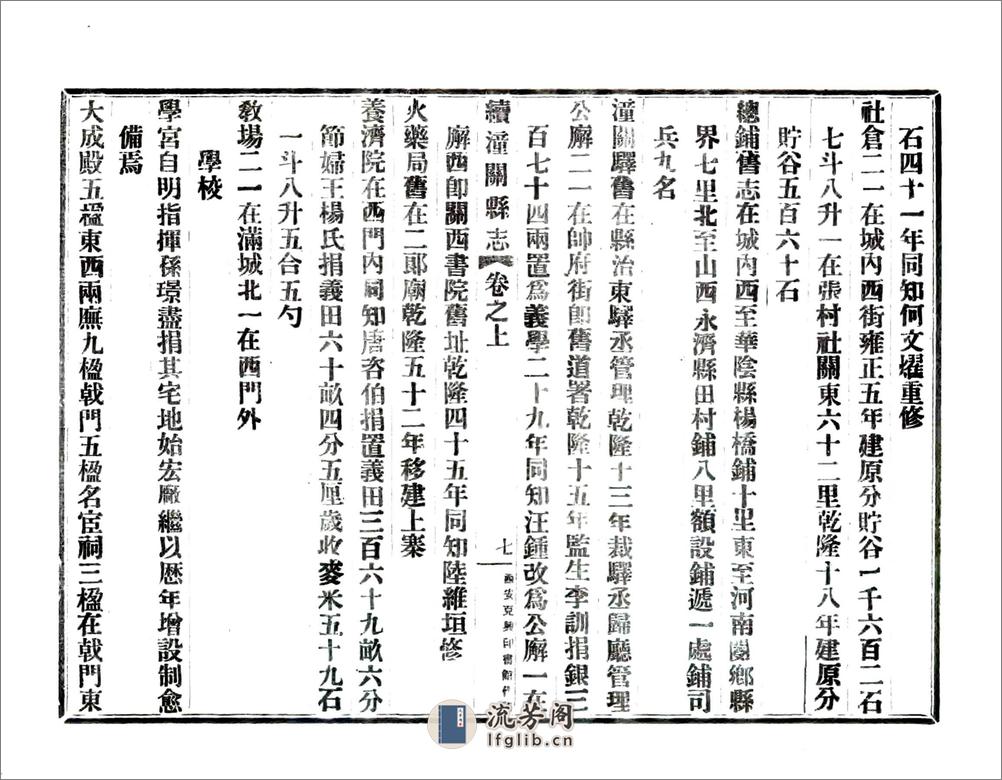 石四十一年同知何文燿重修
社倉二一在城內西街雍正五年建原分貯谷一千六百二石
七斗八升一在張村社關東六十二里乾隆十八年建原分
貯谷五百六十石
總鋪舊志在城內西至華陰縣楊橋鋪十里東至河南閿鄉縣
界七里北至山西永濟縣田村鋪八里額設鋪遞一處鋪司
兵九名
潼關驛舊在縣治東驛丞管理乾隆十三年裁驛丞歸廳管理
公廨二一在帥府街即舊道署乾隆十五年監生李訓捐銀三
百七十四兩置爲義學二十九年同知汪鍾改爲公廨一在
續潼關縣志
卷之上
七
西安克興印書館代
廨西即關西書院舊址乾隆四十五年同知陸維垣修
火藥局舊在二郎廟乾隆五十二年移建上寨
養濟院在西門內同知唐咨伯捐置義田三百六十九畝六分
節婦王楊氏捐義田六十畝四分五厘歲收麥米五十九石
一斗八升五合五勺
教場二一在滿城北一在西門外
學校
學宮自明指揮孫璟盡捐其宅地始宏廠繼以歷年增設制愈
備焉
大成殿五楹東西兩廡九楹戟門五楹名宦祠三楹在戟門東
流芳阁
lfglib.cn